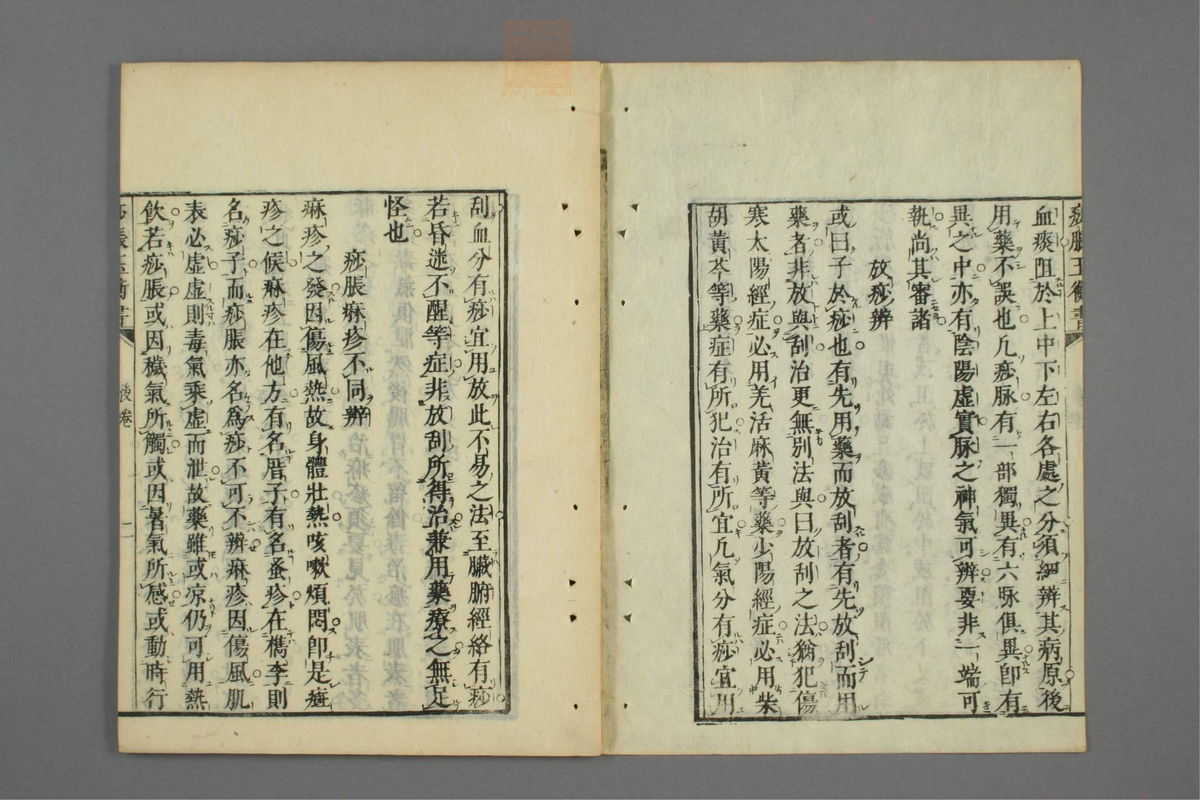 痧脹玉衡書
血瘀阻於上中下左右各處之分須細辨其病原後
用藥不誤也凡痧脉有一部獨異有六脉俱異卽有
異之中亦有陰陽虛實脉之神氣可辨要非一端可
執尚其審諸
放痧辨
或曰子於痧也有先用藥而放刮者有先放刮而用
藥者非放與刮治更無別法與曰放刮之法猶犯傷
寒太陽經症必用羌活麻黃等藥少陽經症必用柴
胡黃芩等藥症有所犯治有所宜凡氣分有痧宜用
刮血分有痧宜用放此不易之法至臟腑經絡有痧
若昏迷不醒等症非放刮所得治兼用藥療之無足
怪也
痧脹痳疹不同辨
痳疹之發因傷風熱故身體壯熱咳嗽煩悶卽是痳
疹之候痳疹在他方有名厝子有名蚤疹在檇李則
名痧子而痧脹亦名爲痧不可不辨痳疹因傷風肌
表必虛虛則毒氣乘虛而泄故藥雖或凉仍可用熱
飲若痧脹或因穢氣所觸或因暑氣所感或動時行
後卷
二
zyzj.com.cn